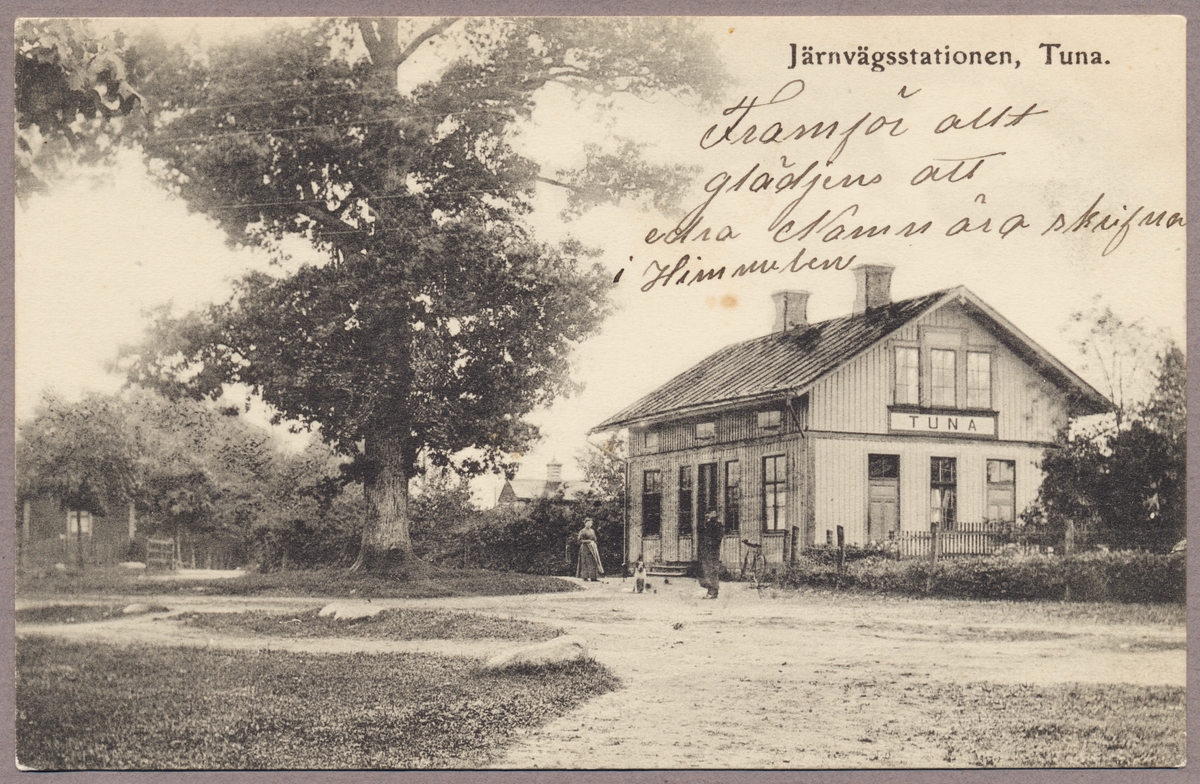 Järnvägsstationen, Tuna.
Framför allt
glädjens att
edra Namn ära skrifna
i Himmelen
TUNA